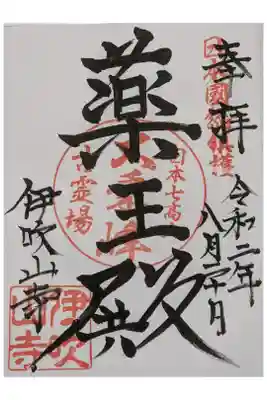 奉拝
令和二年
八月二十日
薬王殿
日本七高
古霊場
伊吹山寺
伊吹
山寺